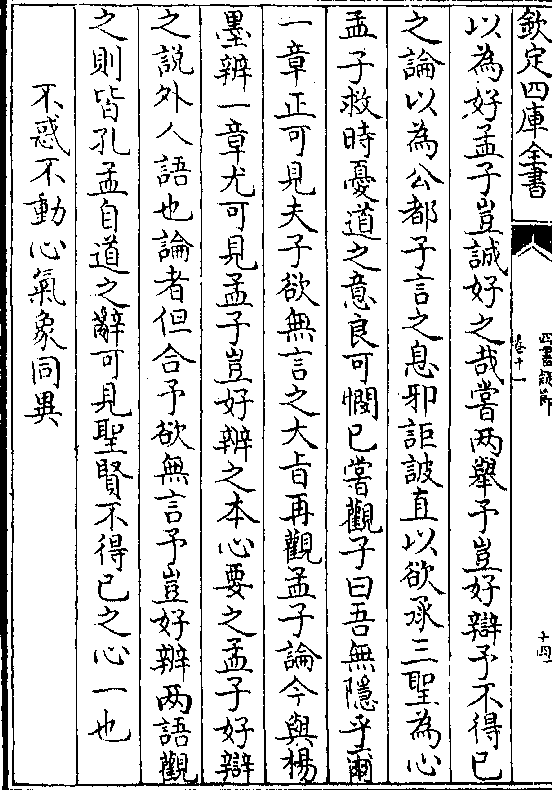 欽定四庫全書
四書疑節
卷十一
十四
以為好孟子豈誠好之哉嘗两舉予豈好辯予不得已
之論以為公都子言之息邪詎詖直以欲承三聖為心
孟子救時憂道之意良可憫已嘗觀子曰吾無隱乎爾
一章正可見夫子欲無言之大旨再觀孟子論今與楊
墨辨一章尤可見孟子豈好辨之本心要之孟子好辯
之説外人語也論者但合予欲無言予豈好辨两語觀
之則皆孔孟自道之辭可見聖賢不得已之心一也
不惑不動心氣象同異